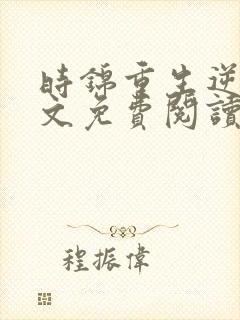 時錦重生逆
文免費閱讀
程振偉